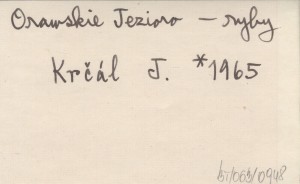 Orawskie Jezioro – ryby
Krčál J. *1965
57/065/0948